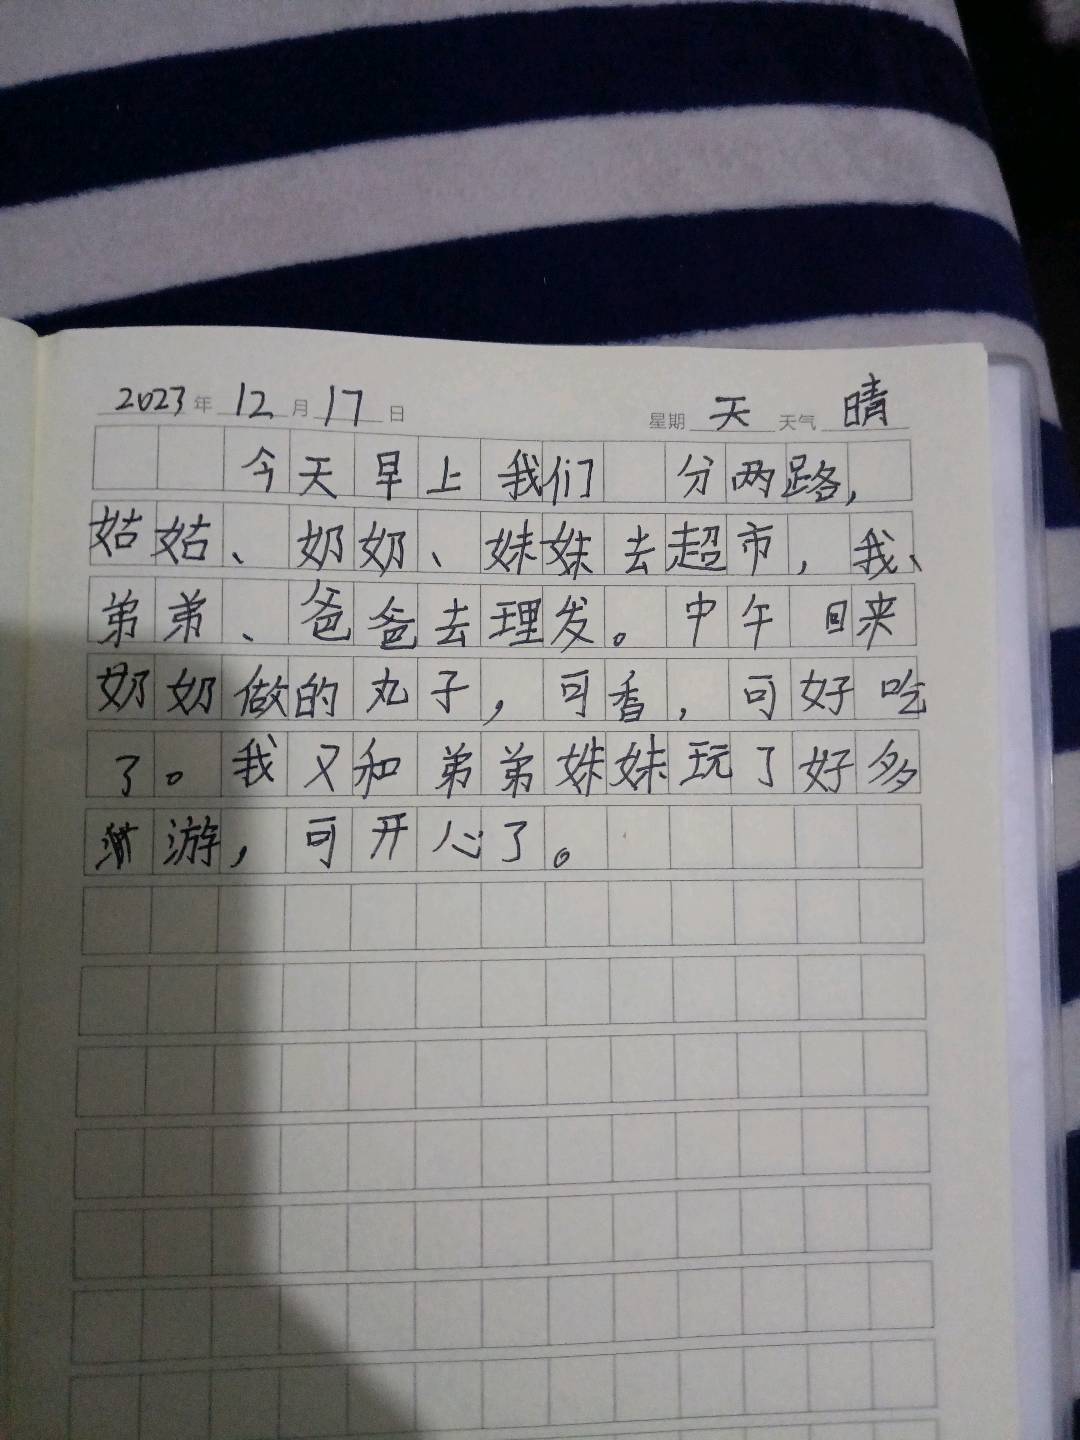 2023年12月17日 星期天 天气晴
今天早上我们 分两路,
姑姑、奶奶、妹妹去超市,我、
弟弟、爸爸去理发。中午回来
奶奶做的丸子,可香,可好吃
了。我又和弟弟妹妹玩了好多
游,可开心了。